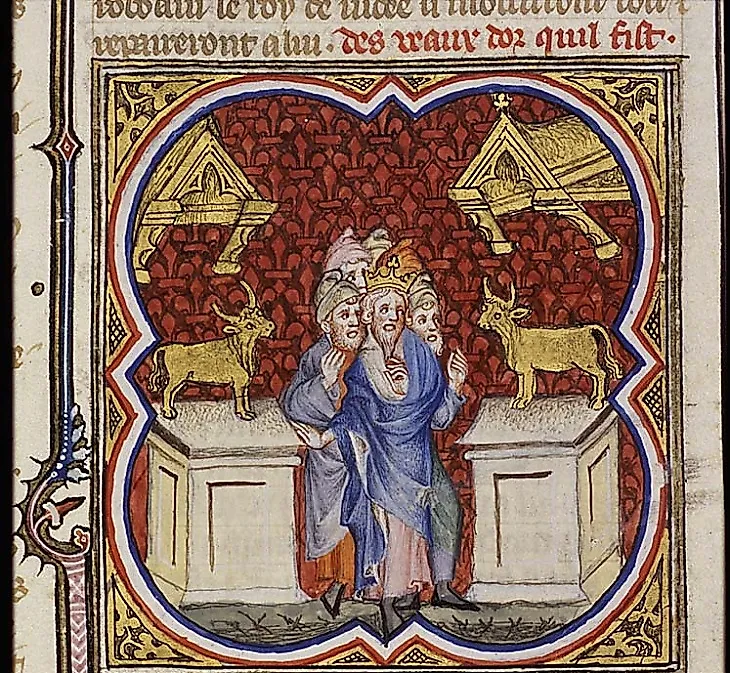 roboam le roy de iudee
repaireront a lui. des veaux dor quil fist.